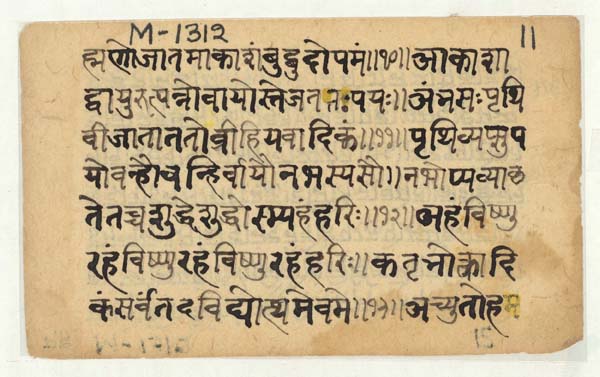 M-1312
11
ह्मणोजातमाकाशंबुद्बुदोपमं॥१०॥आकाशा
द्वायुरुत्पन्नोवायोस्तेजततःपयः॥अंभसःपृथि
वीजाताततोव्रीहियवादिकं॥११॥पृथिव्यप्सुप
योवन्हौवन्हिर्वायौनभस्यसौ॥नभोप्यव्याकृ
तेतच्चशुद्धेशुद्धोस्म्यहंहरिः॥१२॥अहंविष्णु
रहंविष्णुरहंविष्णुरहंहरिः॥कतृभोक्त्रादि
कंसर्वंतदविद्योत्थमेवमे॥१३॥अच्युतोहम